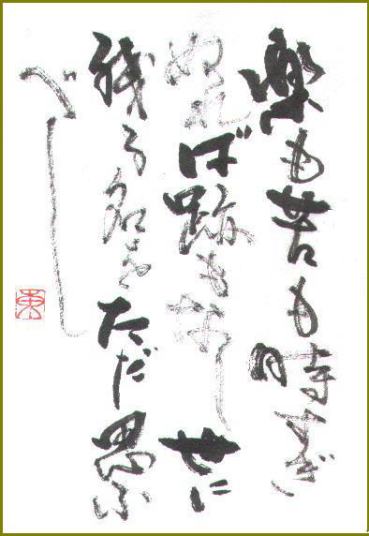 楽も苦も時すぎ
ぬれば跡もなし世に
残る名をただ思ふ
べし
東